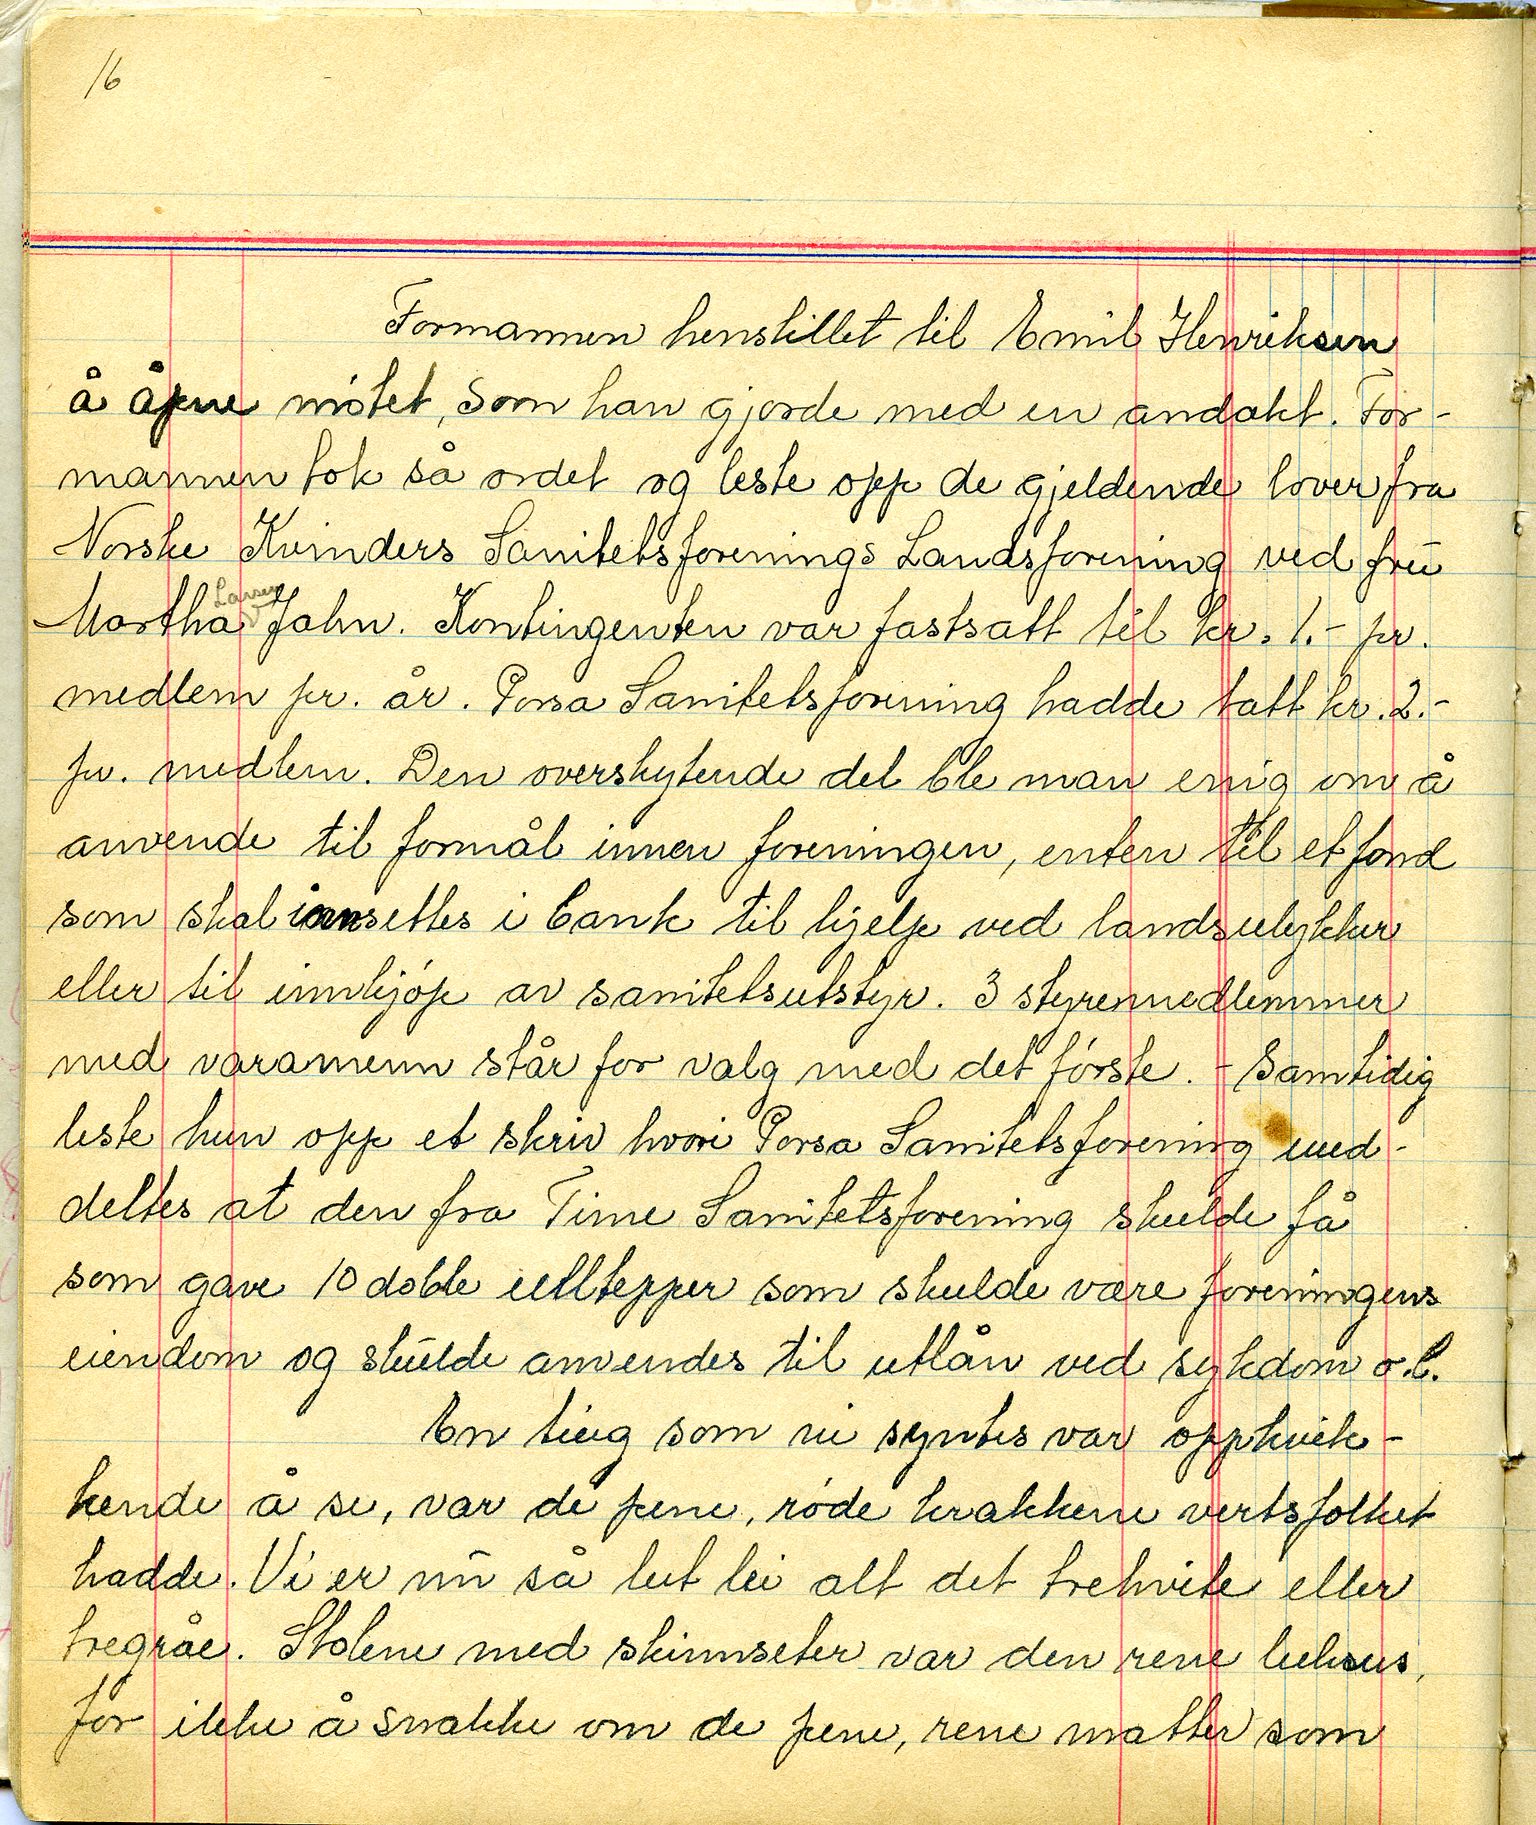 16
Formannen henstillet til Emil Henriksen
å åpne møtet, som han gjorde med en andakt. For-
mannen tok så ordet og leste opp de gjeldende lover fra
Norske Kvinders Sanitetsforenings Landsforening ved fru
Larsen
Martha Jahn. Kontingenten var fastsatt til kr. 1.- pr.
medlem pr. år. Porsa Sanitetsforening hadde tatt kr. 2.-
pr. medlem. Den overskytende del ble man enig om å
anvende til formål innen foreningen, enten til et fond
som skal innsettes i bank til hjelp ved landsulykker
eller til innkjøp av sanitetsutstyr. 3 styremedlemmer
med varamenn står for valg med det første. - Samtidig
leste hun opp et skriv hvori Porsa Sanitetsforening med-
deltes at den fra Time Sanitetsforening skulde få
som gave 10 doble ulltepper som skulde være foreningens
eiendom og skulde anvendes til utlån ved sykdom o.l.
En ting som vi syntes var oppkvik-
kende å se, var de pene, røde krakkene vertsfolket
hadde. Vi er nu så lut lei alt det trehvite eller
tregråe. Stolene med skinnseter var den rene luksus,
for ikke å snakke om de pene, rene matter som